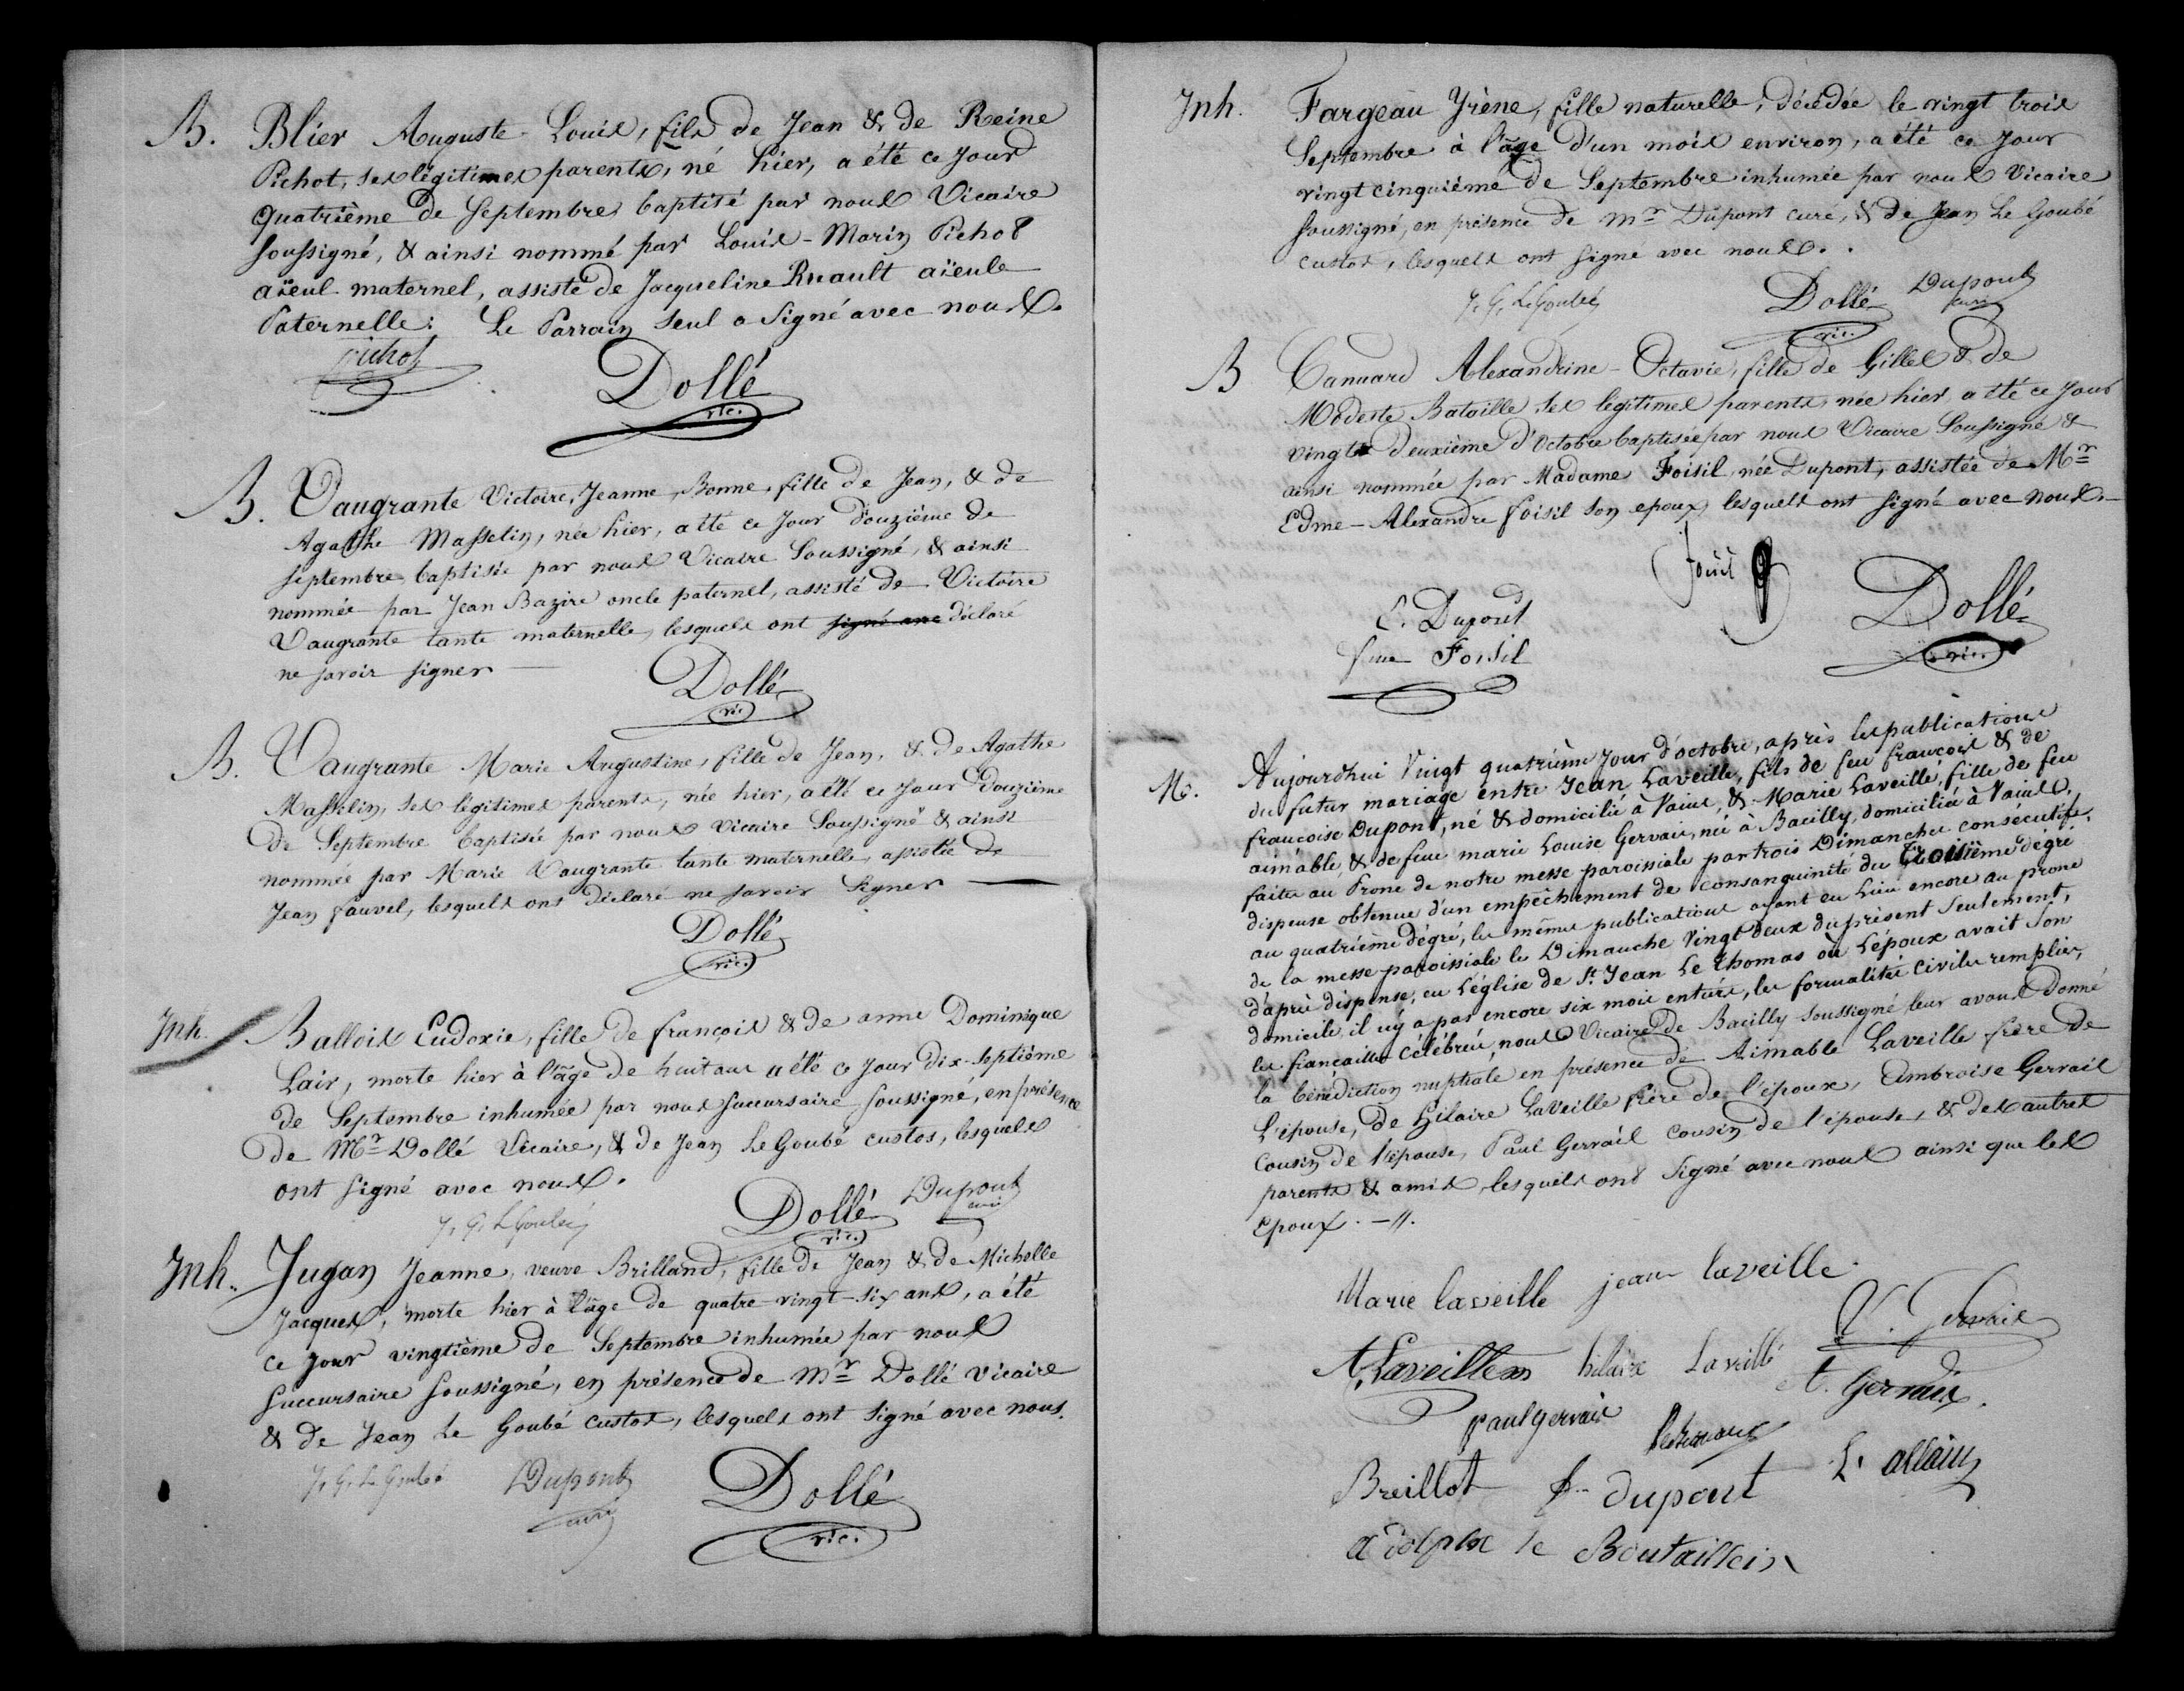 B. Blier Auguste-Louis, fils de Jean & de Reine
Pichot, ses légitimes parents, né hier, a été ce jour
quatrième de septembre baptisé par nous Vicaire
soussigné, & ainsi nommé par Louis-Marin Pichot
aïeul maternel, assisté de Jacqueline Ruault aïeule
Paternelle: Le Parrain seul a signé avec nous.
Pichot
Dollé
vic.
B. Vaugrante Victoire, Jeanne, Bonne, fille de Jean, & de
Agathe Masselin, née hier, a été ce jour douzième de
septembre baptisée par nous Vicaire soussigné, & ainsi
nommée par Jean Bazire oncle paternel, assisté de Victoire
Vaugrante tante maternelle, lesquels ont signé avec déclaré
ne savoir signer
Dollé
vic.
B. Vaugrante Marie Augustine, fille de Jean, & de Agathe
Masselin, ses légitimes parents, née hier, a été ce jour douzième
de Septembre baptisée par nous vicaire soussigné & ainsi
nommée par Marie Vaugrante tante maternelle, assistée de
Jean fauvel, lesquels ont déclaré ne savoir signer
Dollé
vic.
Inh. Ballois Eudoxie, fille de françois & de anne Dominique
Lair, morte hier à l'âge de huit ans a été ce jour dix-septième
de Septembre inhumée par nous succursaire soussigné, en présence
de Mr Dollé Vicaire, & de Jean Le Goubé custos, lesquels
ont signé avec nous.
J. G. LeGoubé
Dollé
vic.
Dupont
curé
Inh. Jugan Jeanne, veuve Brilland, fille de Jean & de Michelle
Jacques, morte hier à l'âge de quatre-vingt-six ans, a été
ce jour vingtième de Septembre inhumée par nous
succursaire soussigné, en présence de Mr Dollé vicaire
& de Jean Le Goubé custos, lesquels ont signé avec nous.
J. G. Le Goubé
Dupont
curé
Dollé
vic.
Inh. Fargeau Yrène, fille naturelle, décédée le vingt trois
Septembre à l'âge d'un mois environ, a été ce jour
vingt cinquième de Septembre inhumée par nous Vicaire
soussigné, en présence de Mr Dupont curé, & de Jean Le Goubé
custos, lesquels ont signé avec nous.
J. G. LeGoubé
Dollé
vic.
Dupont
curé
B Canuard Alexandrine-Octavie, fille de Gilles & de
Modeste Bataille ses légitimes parents, née hier, a été ce jour
vingt deuxième d'octobre baptisée par nous Vicaire soussigné &
ainsi nommée par Madame Foisil née Dupont, assistée de Mr
Edme-Alexandre foisil son epoux, lesquels ont signé avec nous.
foisil
E. Dupont
fme Foisil
Dollé
vic.
M. Aujourdhui Vingt quatrième jour d'octobre, après les publications
du futur mariage entre Jean Laveille, fils de feu françois & de
françoise Dupont, né & domicilié à Vains, & Marie Laveille, fille de feu
aimable, & de feue marie Louise Gervais, née à Bacilly, domiciliée à Vains,
faites au Prone de notre messe paroissiale par trois Dimanches consécutifs,
dispense obtenue d'un empêchement de consanguinité du troisième dégré
au quatrième dégré, les mêmes publications ayant eu lieu encore au prone
de la messe paroissiale le Dimanche vingt deux du présent seulement,
d'après dispense, en L'église de St Jean Le Thomas où L'époux avait son
domicile il n'y a pas encore six mois entiers, les formalités civiles remplies,
les fiançailles célébrées, nous Vicaire de Bacilly soussigné leur avons donné
la bénédiction nuptiale en présence de Aimable Laveille frère de
L'épouse, de Hilaire Laveille frère de l'époux, Ambroise Gervais
Cousin de l'épouse, Paul Gervais cousin de l'épouse, & des autres
parents & amis, lesquels ont signé avec nous ainsi que les
Epoux. -//.
Marie laveille jean laveille
V. Gervais
A. Laveille hilaire Laveille
A. Gervais
paul gervais
Breillot dupont L. allain
adolphe le Bouteiller